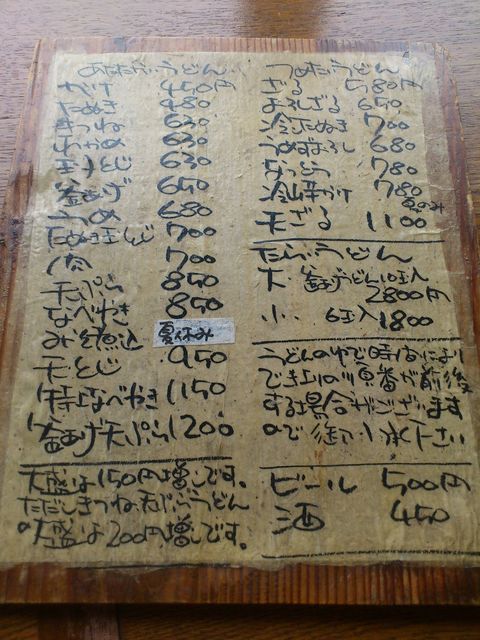 あたたかいうどん
かけ 450円
たぬき 480
きつね 630
わかめ 630
玉子とじ 630
釜あげ 650
うめ 680
たぬき玉とじ 700
肉 700
天ぷら 850
なべやき 850
みそ煮込 夏休み
天とじ 950
特上なべやき 1150
釜あげ天ぷら 1200
大盛は150円増しです。
ただしきつね、天ぷらうどん
の大盛は200円増しです。
つめたいうどん
ざる 580円
おろしざる 650
冷したぬき 700
うめおろし 680
なっとう 780
冷山芋かけ 780
夏のみ
天ざる 1100
たらいうどん
大 釜あげうどん10玉入
2800円
小 6玉入 1800
うどんのゆで時間により
でき上りの順番が前後
する場合がございます
ので御了承下さい
ビール 500円
酒 450